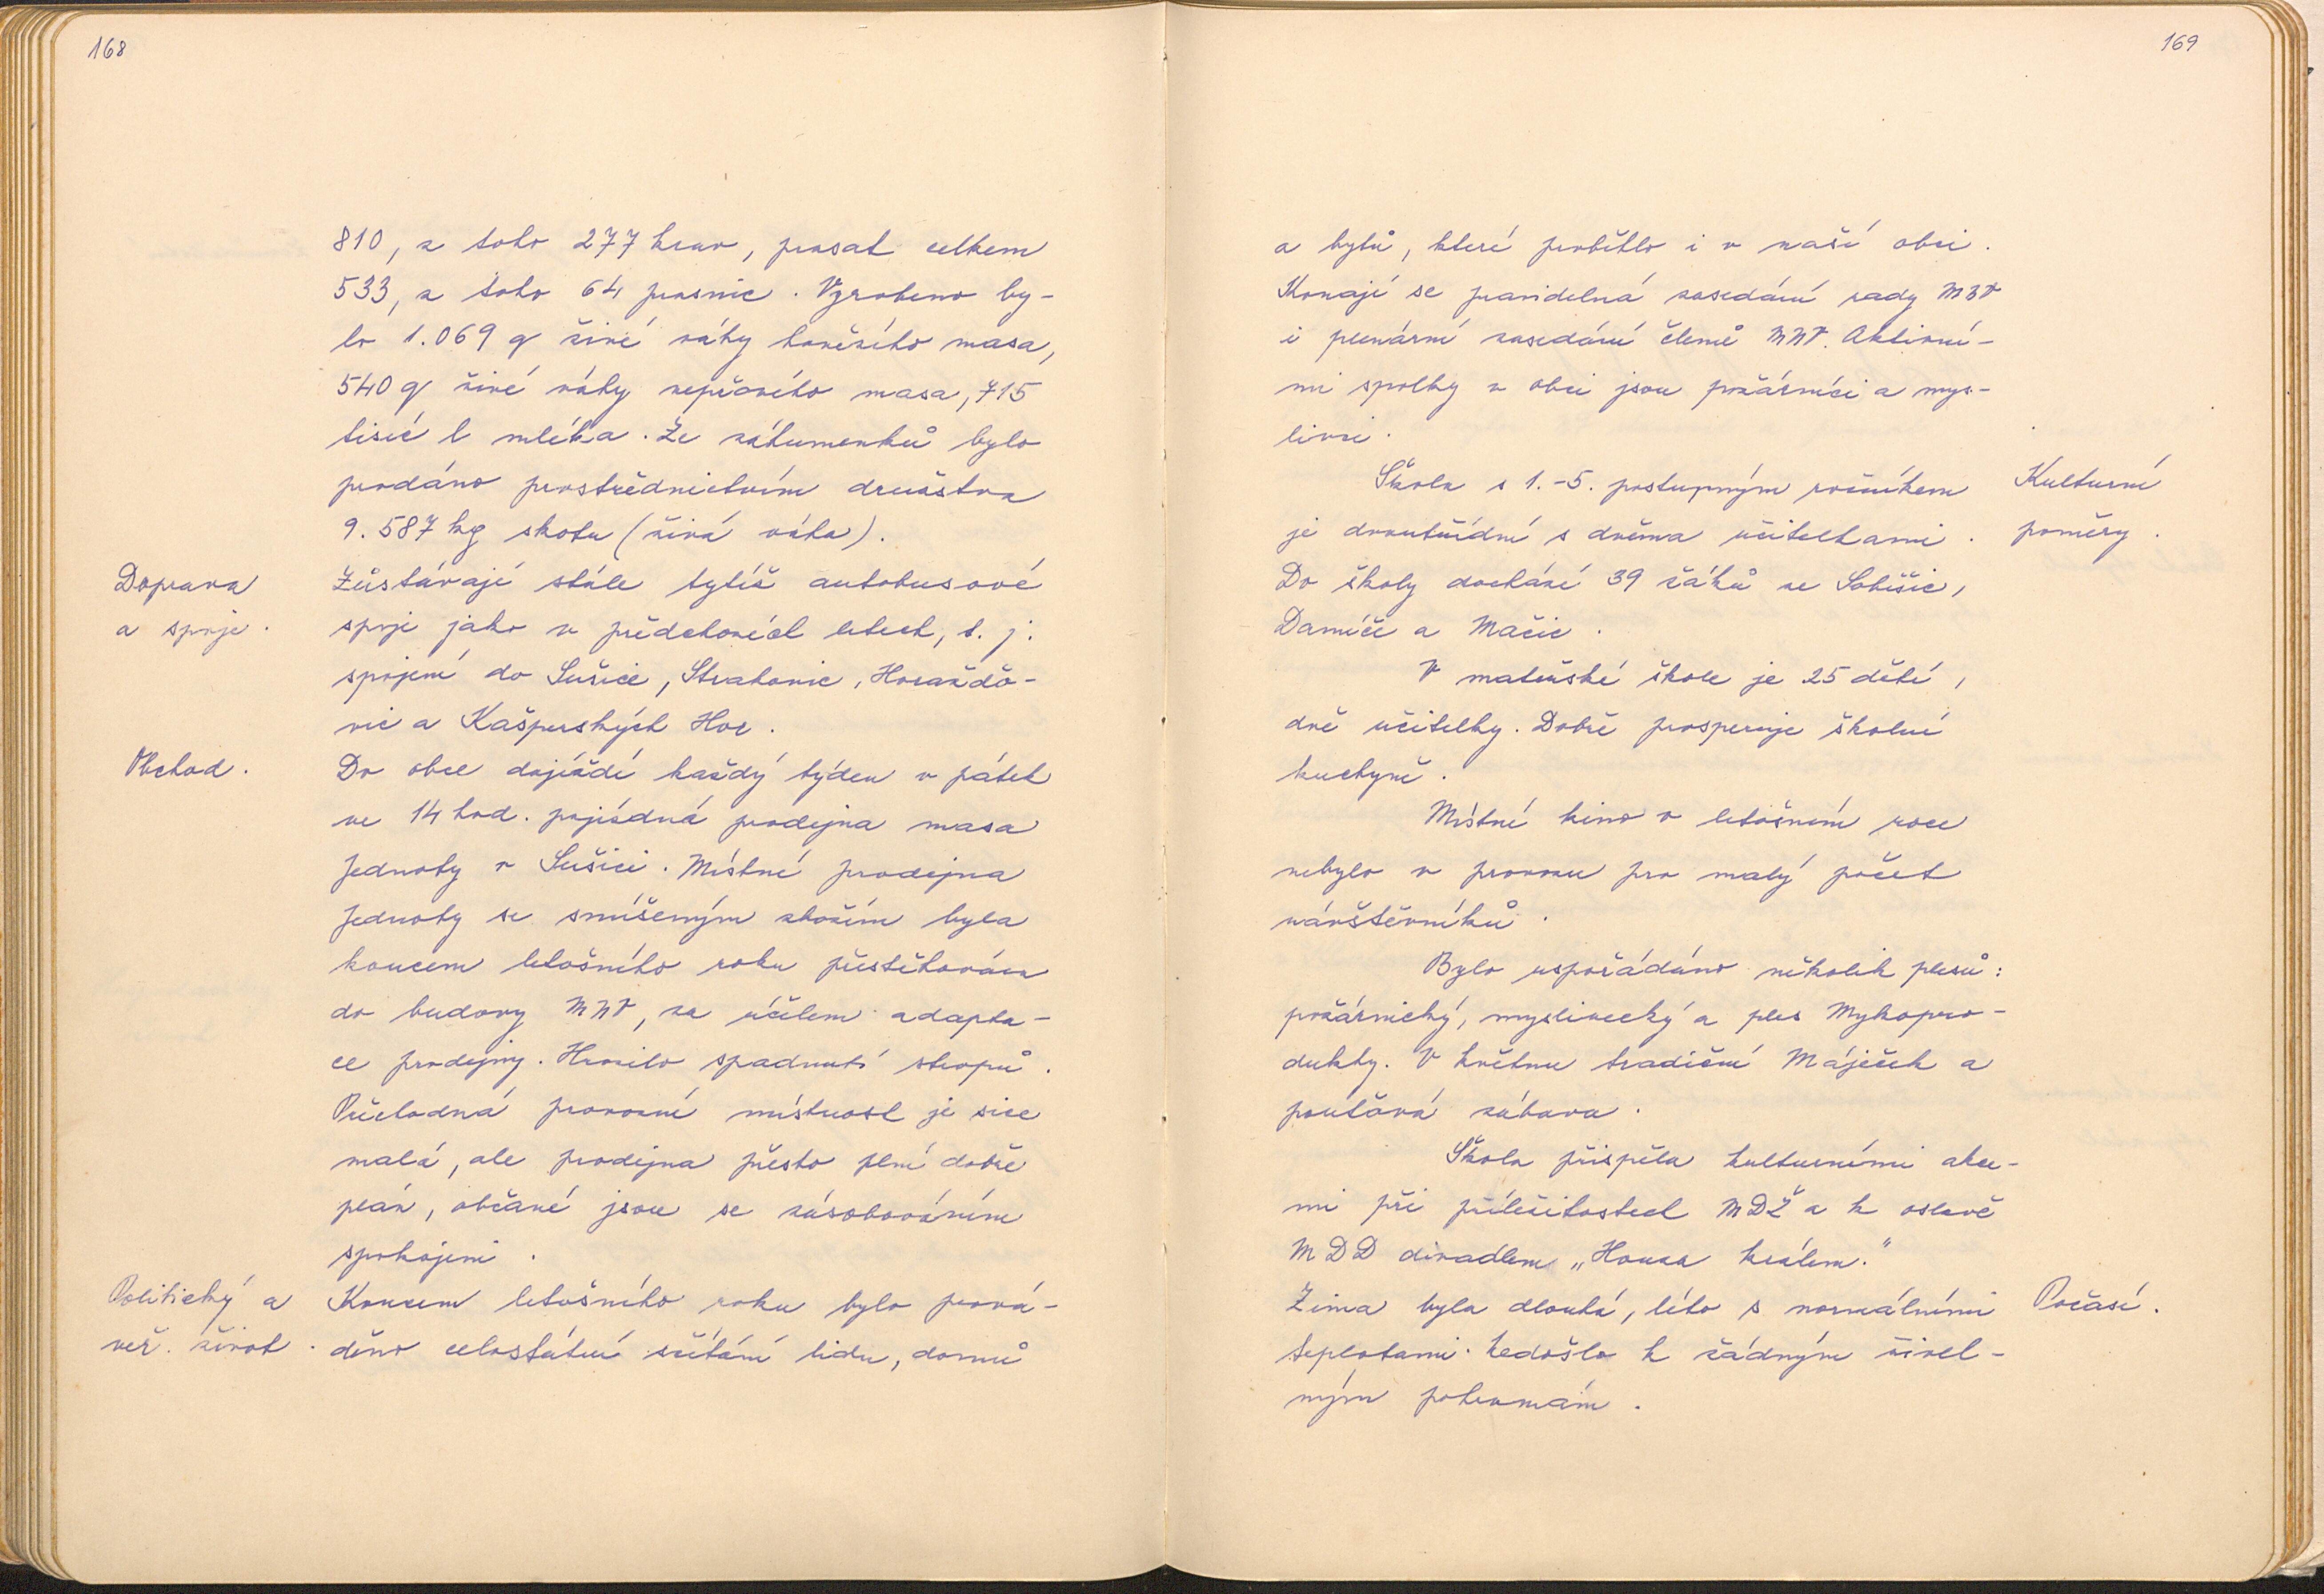 168
810, z toho 277 krav, prasat celkem
533, z toho 64 prasnic. Vyrobeno by-
lo 1.069 q živé váhy hovězího masa,
540 q živé váhy vepřového masa, 715
tisíc l mléka. Ze záhumenků bylo
prodáno prostřednictvím družstva
9.587 kg skotu (živá váha).
Doprava
a spoje.
Zůstávají stále tytéž autobusové
spoje jako v předchozích letech, t. j.
spojení do Sušice, Strakonic, Horažďo-
vic a Kašperských Hor.
Obchod.
Do obce dojíždí každý týden v pátek
ve 14 hod. pojízdná prodejna masa
Jednoty v Sušici. Místní prodejna
Jednoty se smíšeným zbožím byla
koncem letošního roku přestěhována
do budovy MNV, za účelem adapta-
ce prodejny. Hrozilo spadnutí stropů.
Přechodná provozní místnost je sice
malá, ale prodejna přesto plní dobře
plán, občané jsou se zásobováním
spokojeni.
Politický a
veř. život.
Koncem letošního roku bylo prová-
děno celostátní sčítání lidu, domů
169
a bytů, které proběhlo i v naší obci.
Konají se pravidelná zasedání rady MNV
i plenární zasedání členů MNV. Aktivní-
mi spolky v obci jsou požárníci a mys-
livci.
Kulturní
poměry.
Škola s 1.-5. postupným ročníkem
je dvoutřídní s dvěma učitelkami.
Do školy dochází 39 žáků ze Soběšic,
Damíče a Mačic.
V mateřské škole je 25 dětí,
dvě učitelky. Dobře prosperuje školní
kuchyně.
Místní kino v letošním roce
nebylo v provozu pro malý počet
návštěvníků.
Bylo uspořádáno několik plesů:
požárnický, myslivecký a ples Mykopro-
dukty. V květnu tradiční Máječek a
pouťová zábava.
Škola přispěla kulturními akce-
mi při příležitostech MDŽ a k oslavě
MDD divadlem „Honza králem."
Počasí.
Zima byla dlouhá, léto s normálními
teplotami. Nedošlo k žádným živel-
ným pohromám.